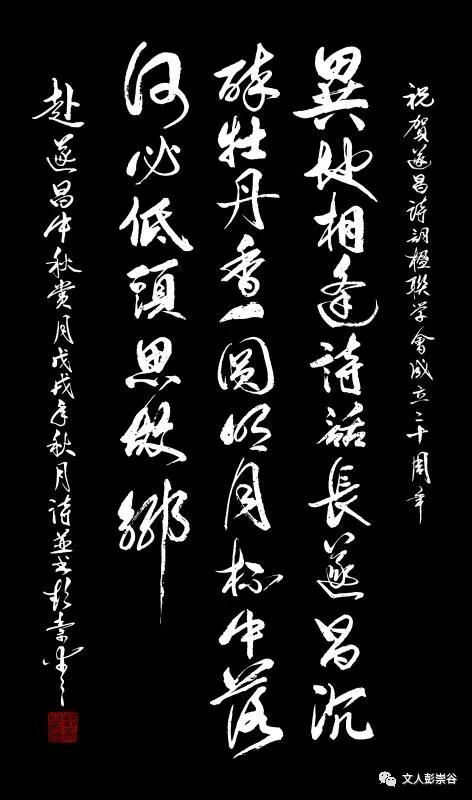 祝賀遂昌詩詞楹聯学會成立三十周年
異地相逢詩話長遂昌沉
醉牡丹香一圓明月杯中落
何必低頭思故鄉
赴遂昌中秋賞月戊戌年秋月詩並书彭崇谷
文人彭崇谷